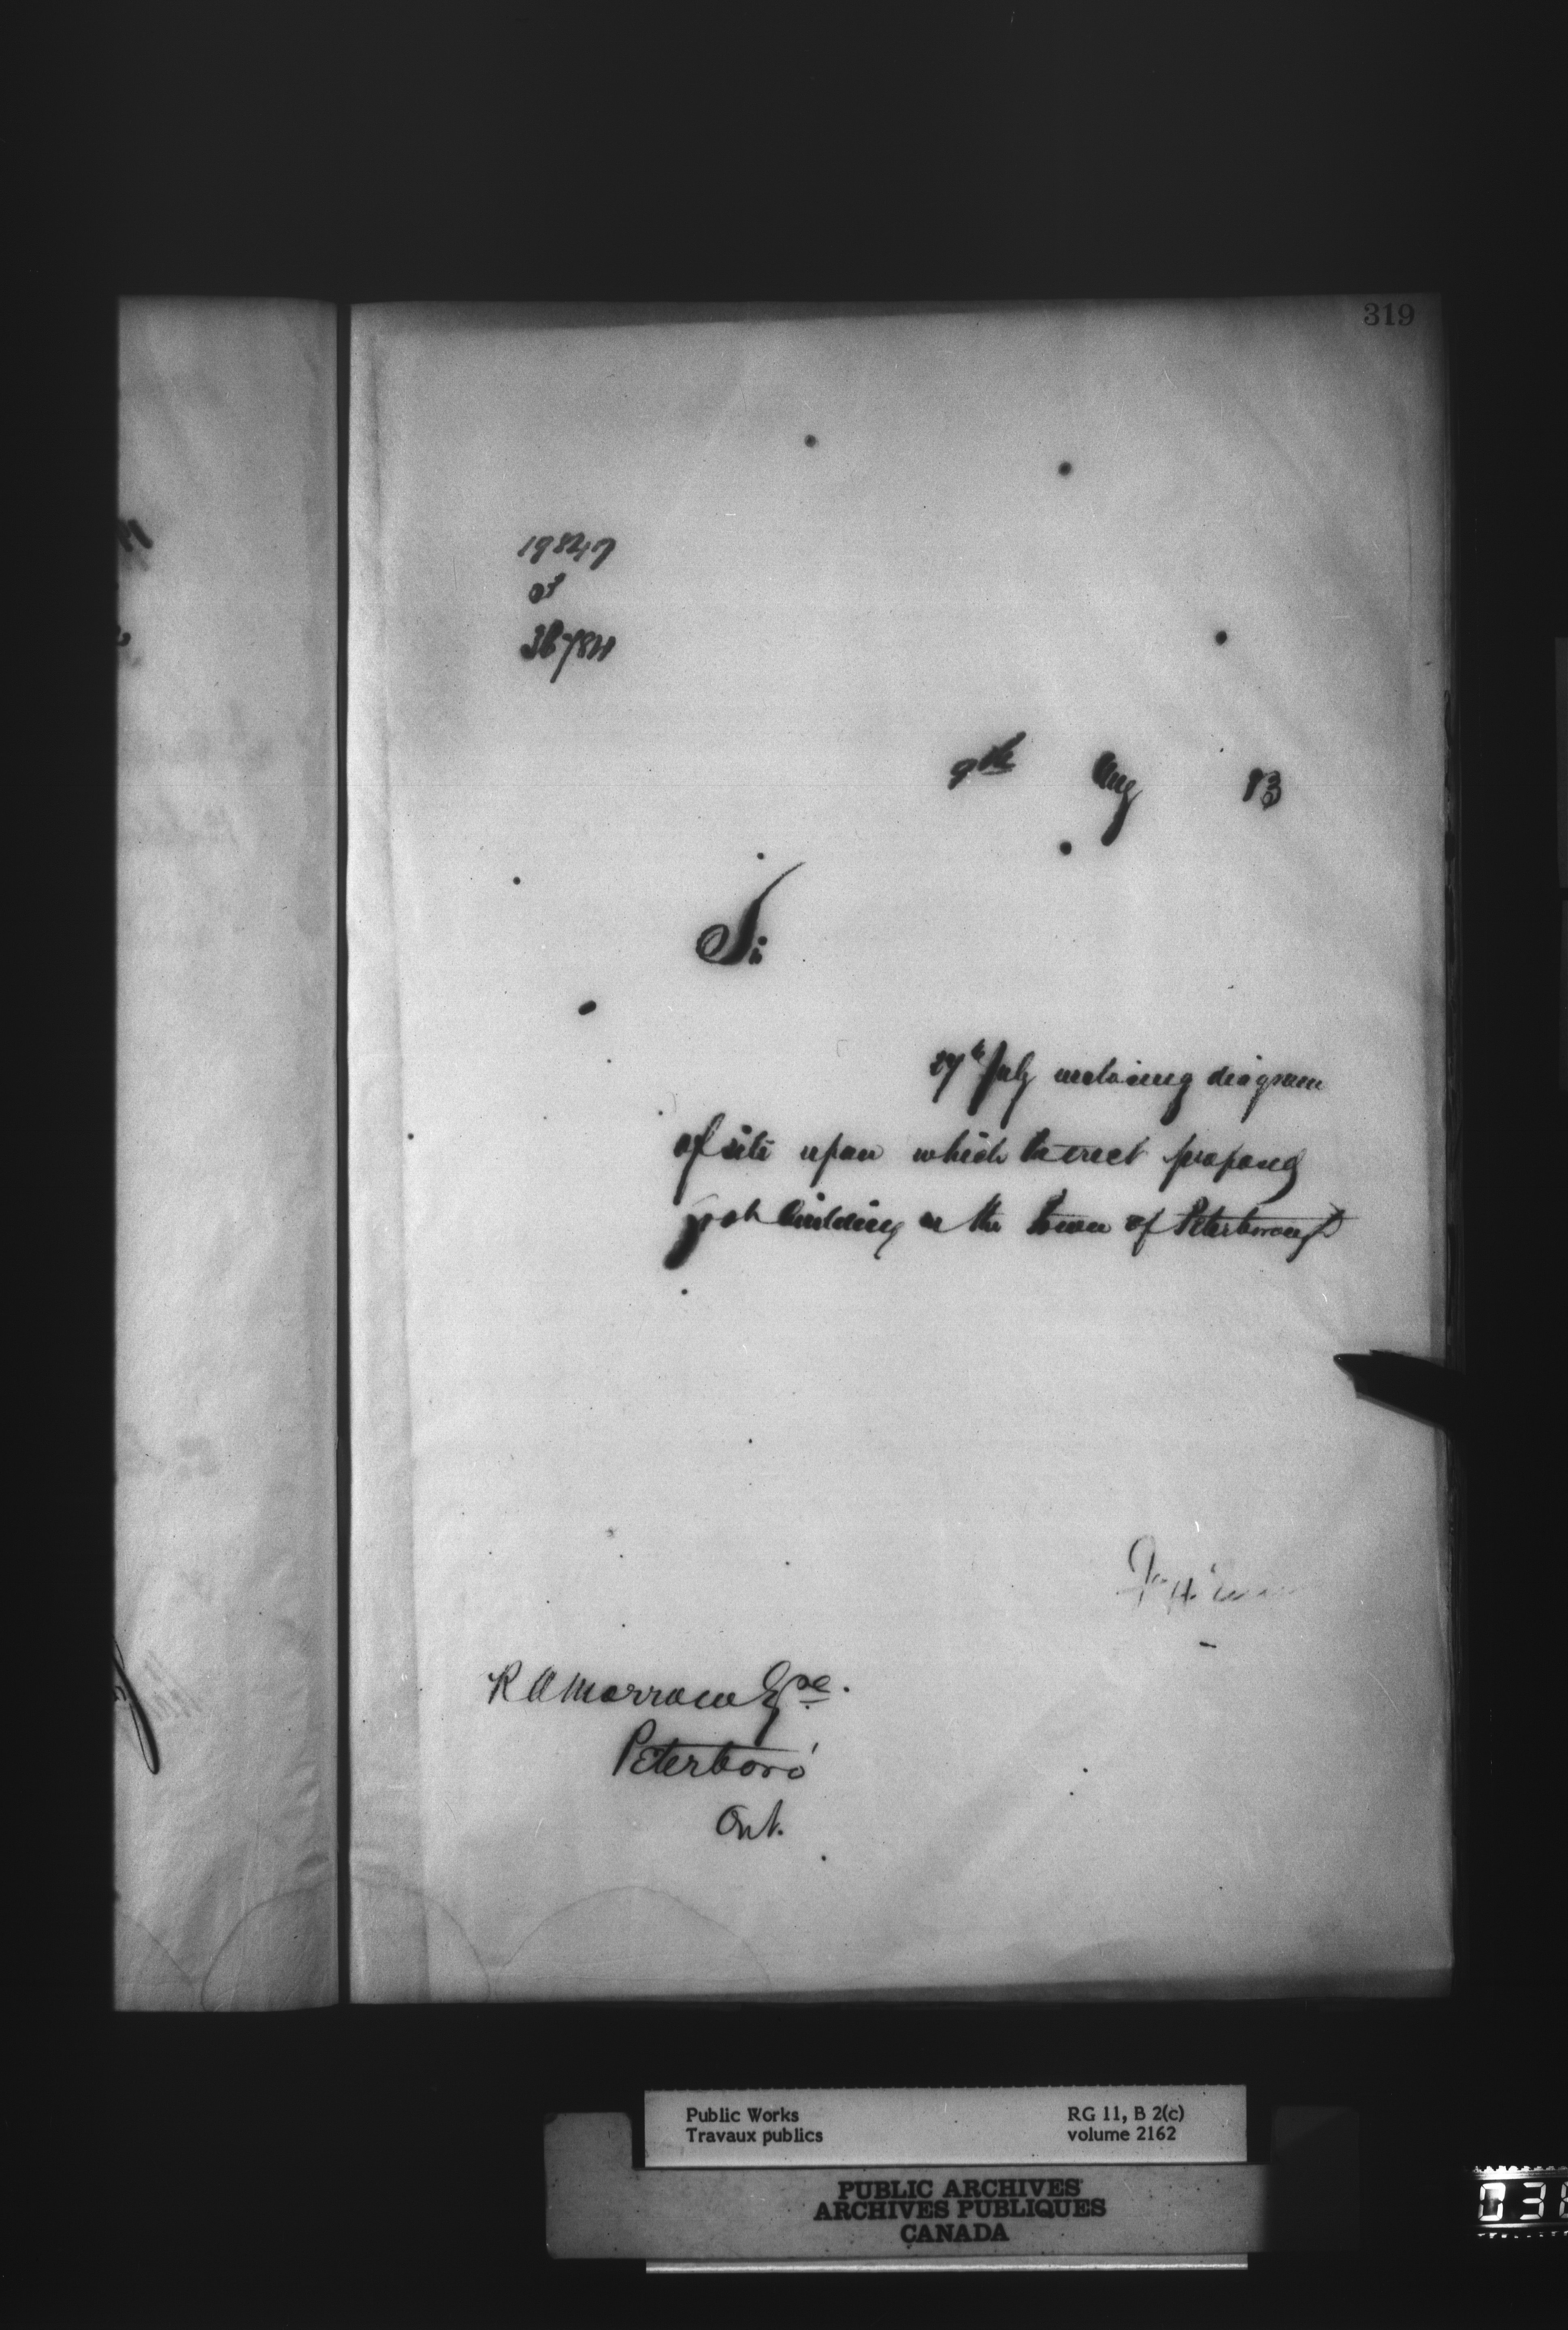 319
19847
of
38784
9th Aug 83
Sir
27th July enclosing diagram
of site upon which to erect proposed
pub building in the town of Peterborough
R A Morrow Esqe.
Peterboro'
Ont.
Public Works
Travaux publics
RG 11, B 2(c)
volume 2162
PUBLIC ARCHIVES
ARCHIVES PUBLIQUES
CANADA